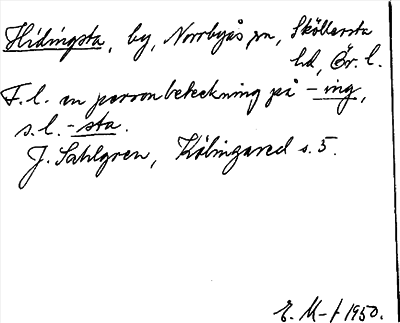 Hidingsta, by, Norrbyås sn, Sköllersta
hd, Ör. l.
F.l. en personbeteckning på -ing,
s.l. -sta.
J. Sahlgren, Kölingared s. 5.
E. M-t 1950.